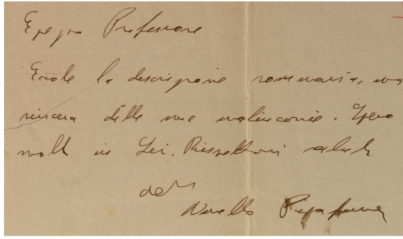 Egregio Professore
Eccole la descrizione sommaria, ma
sincera delle mie malinconie. Spero
molto in Lei. Rispettosi saluti
Novello Papafava